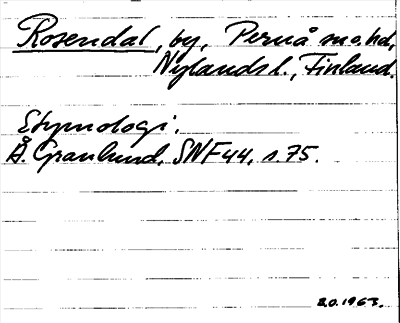 Rosendal, by, Pernå sn o. hd,
Nylands l., Finland.
Etymologi.
Å. Granlund, SNF 44, s. 75.
20.1963.